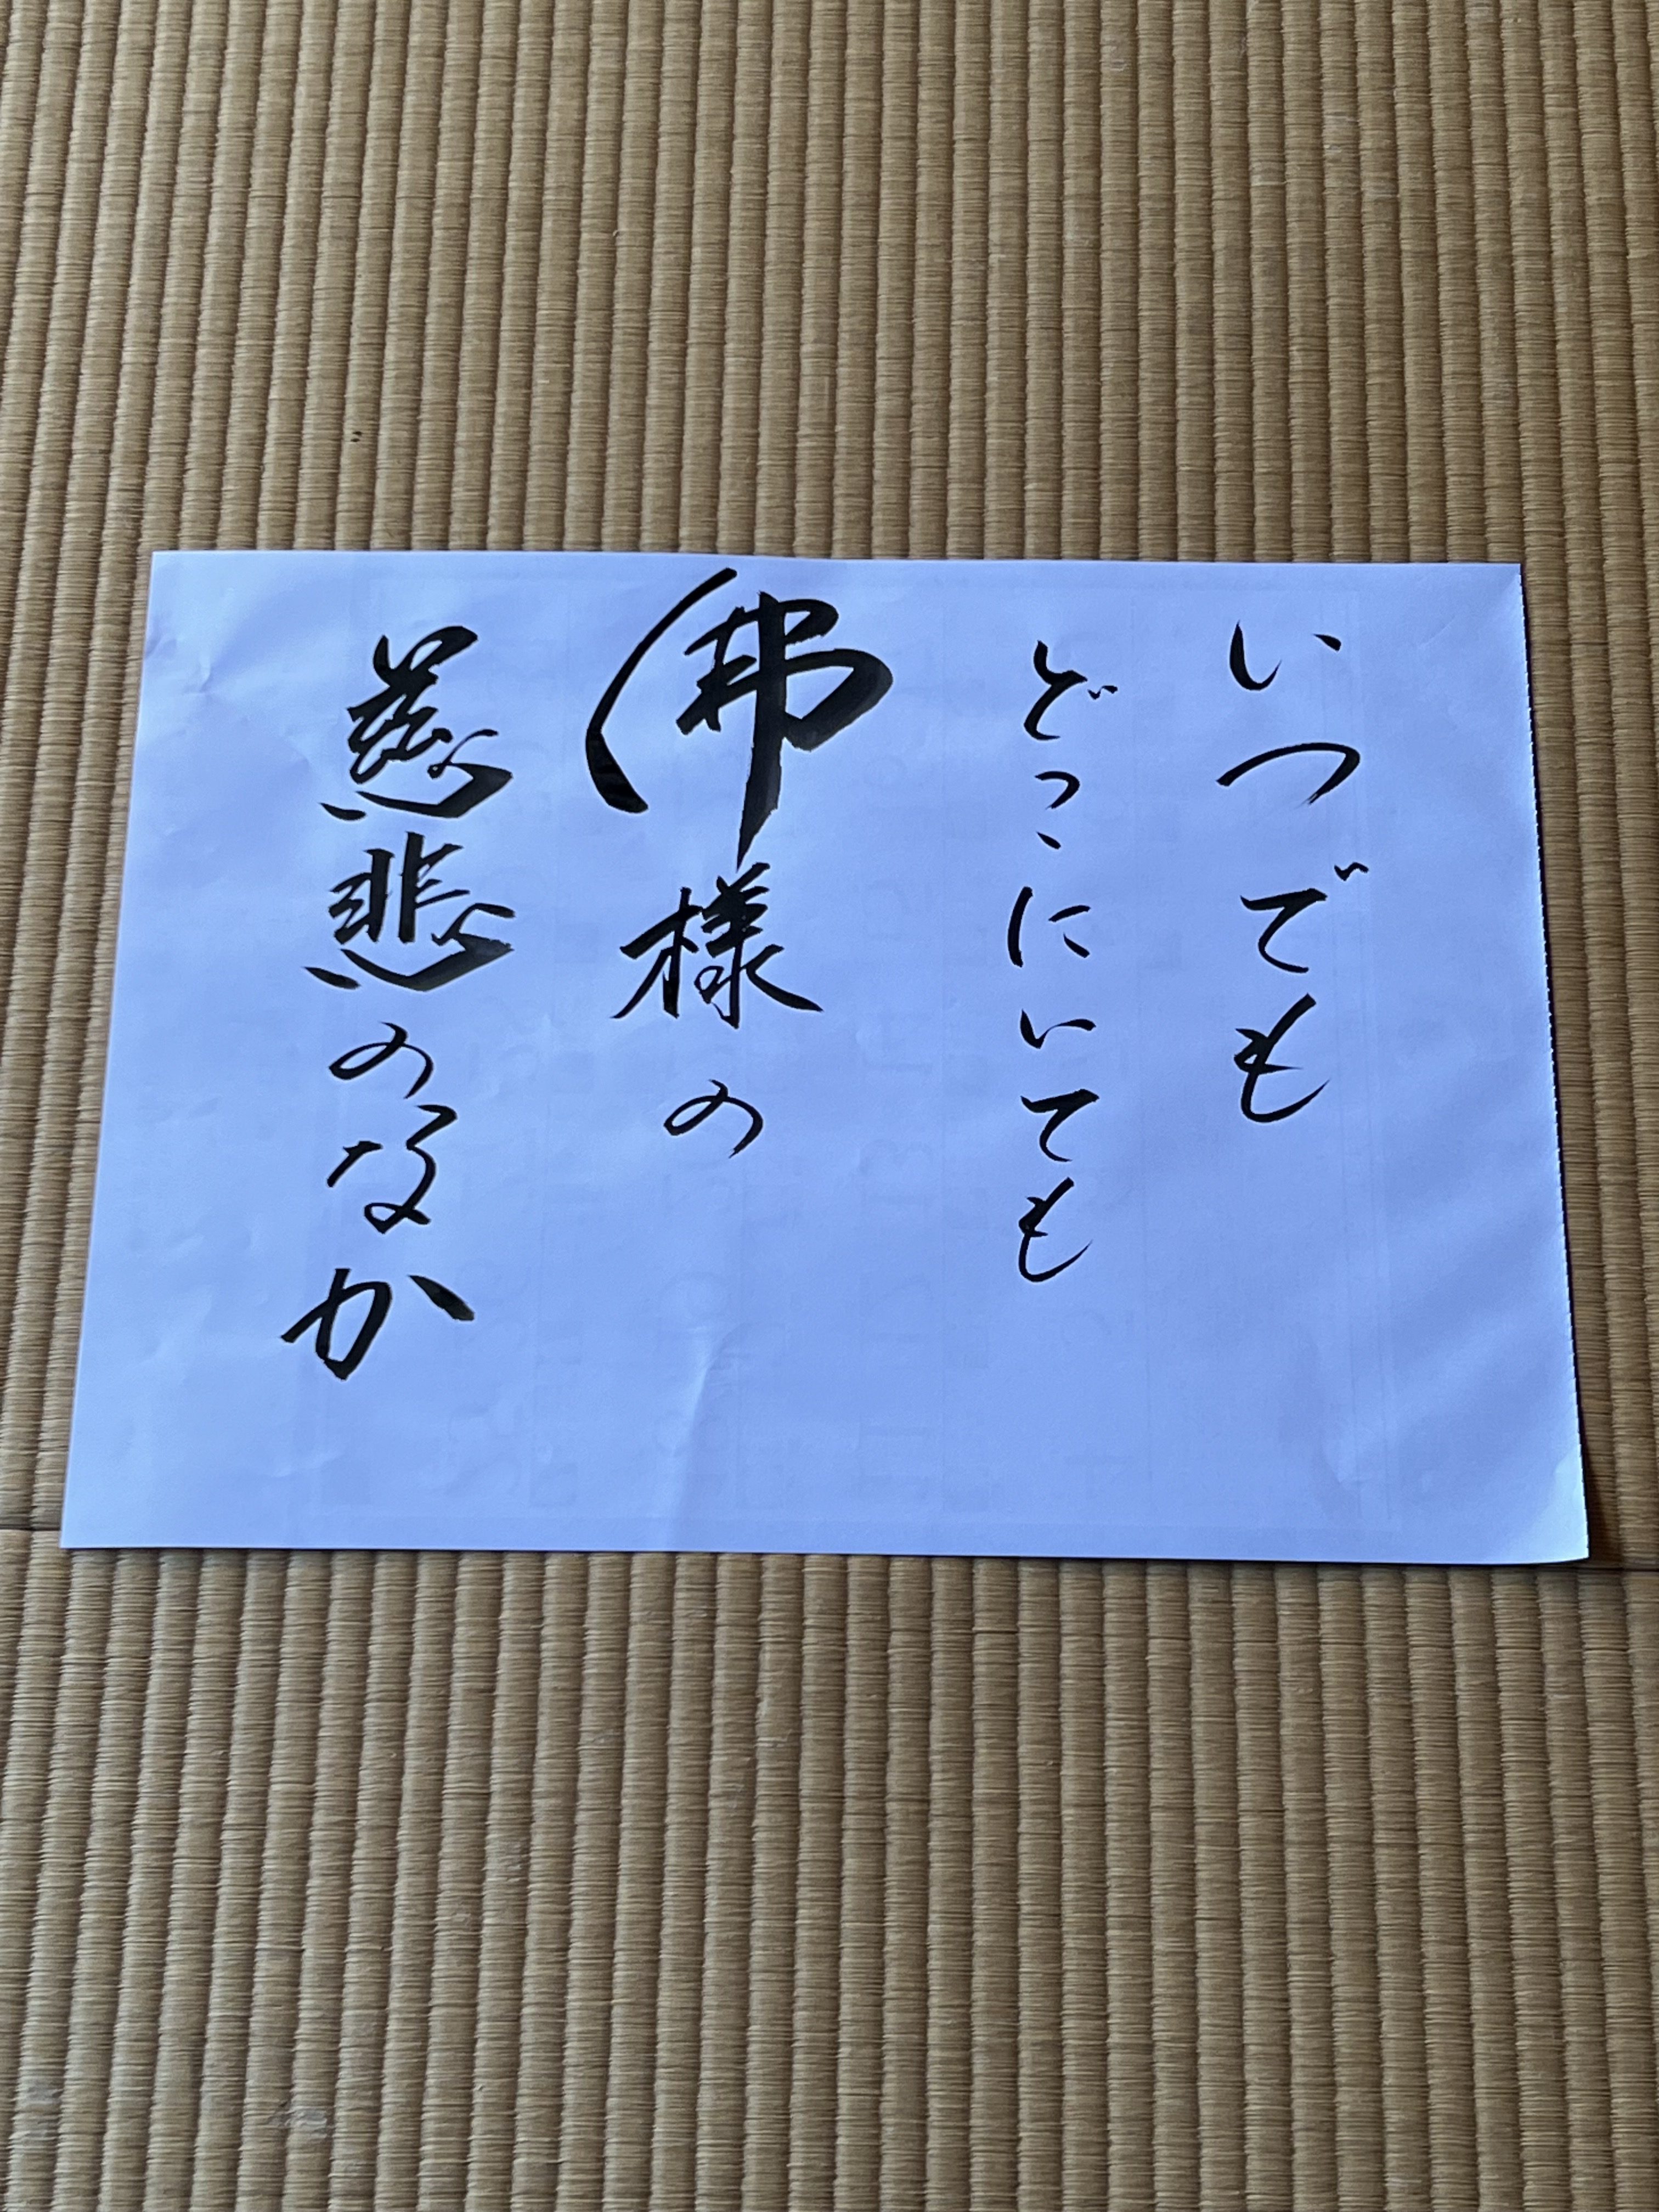 いつでも
どこにいても
佛様の
慈悲のなか